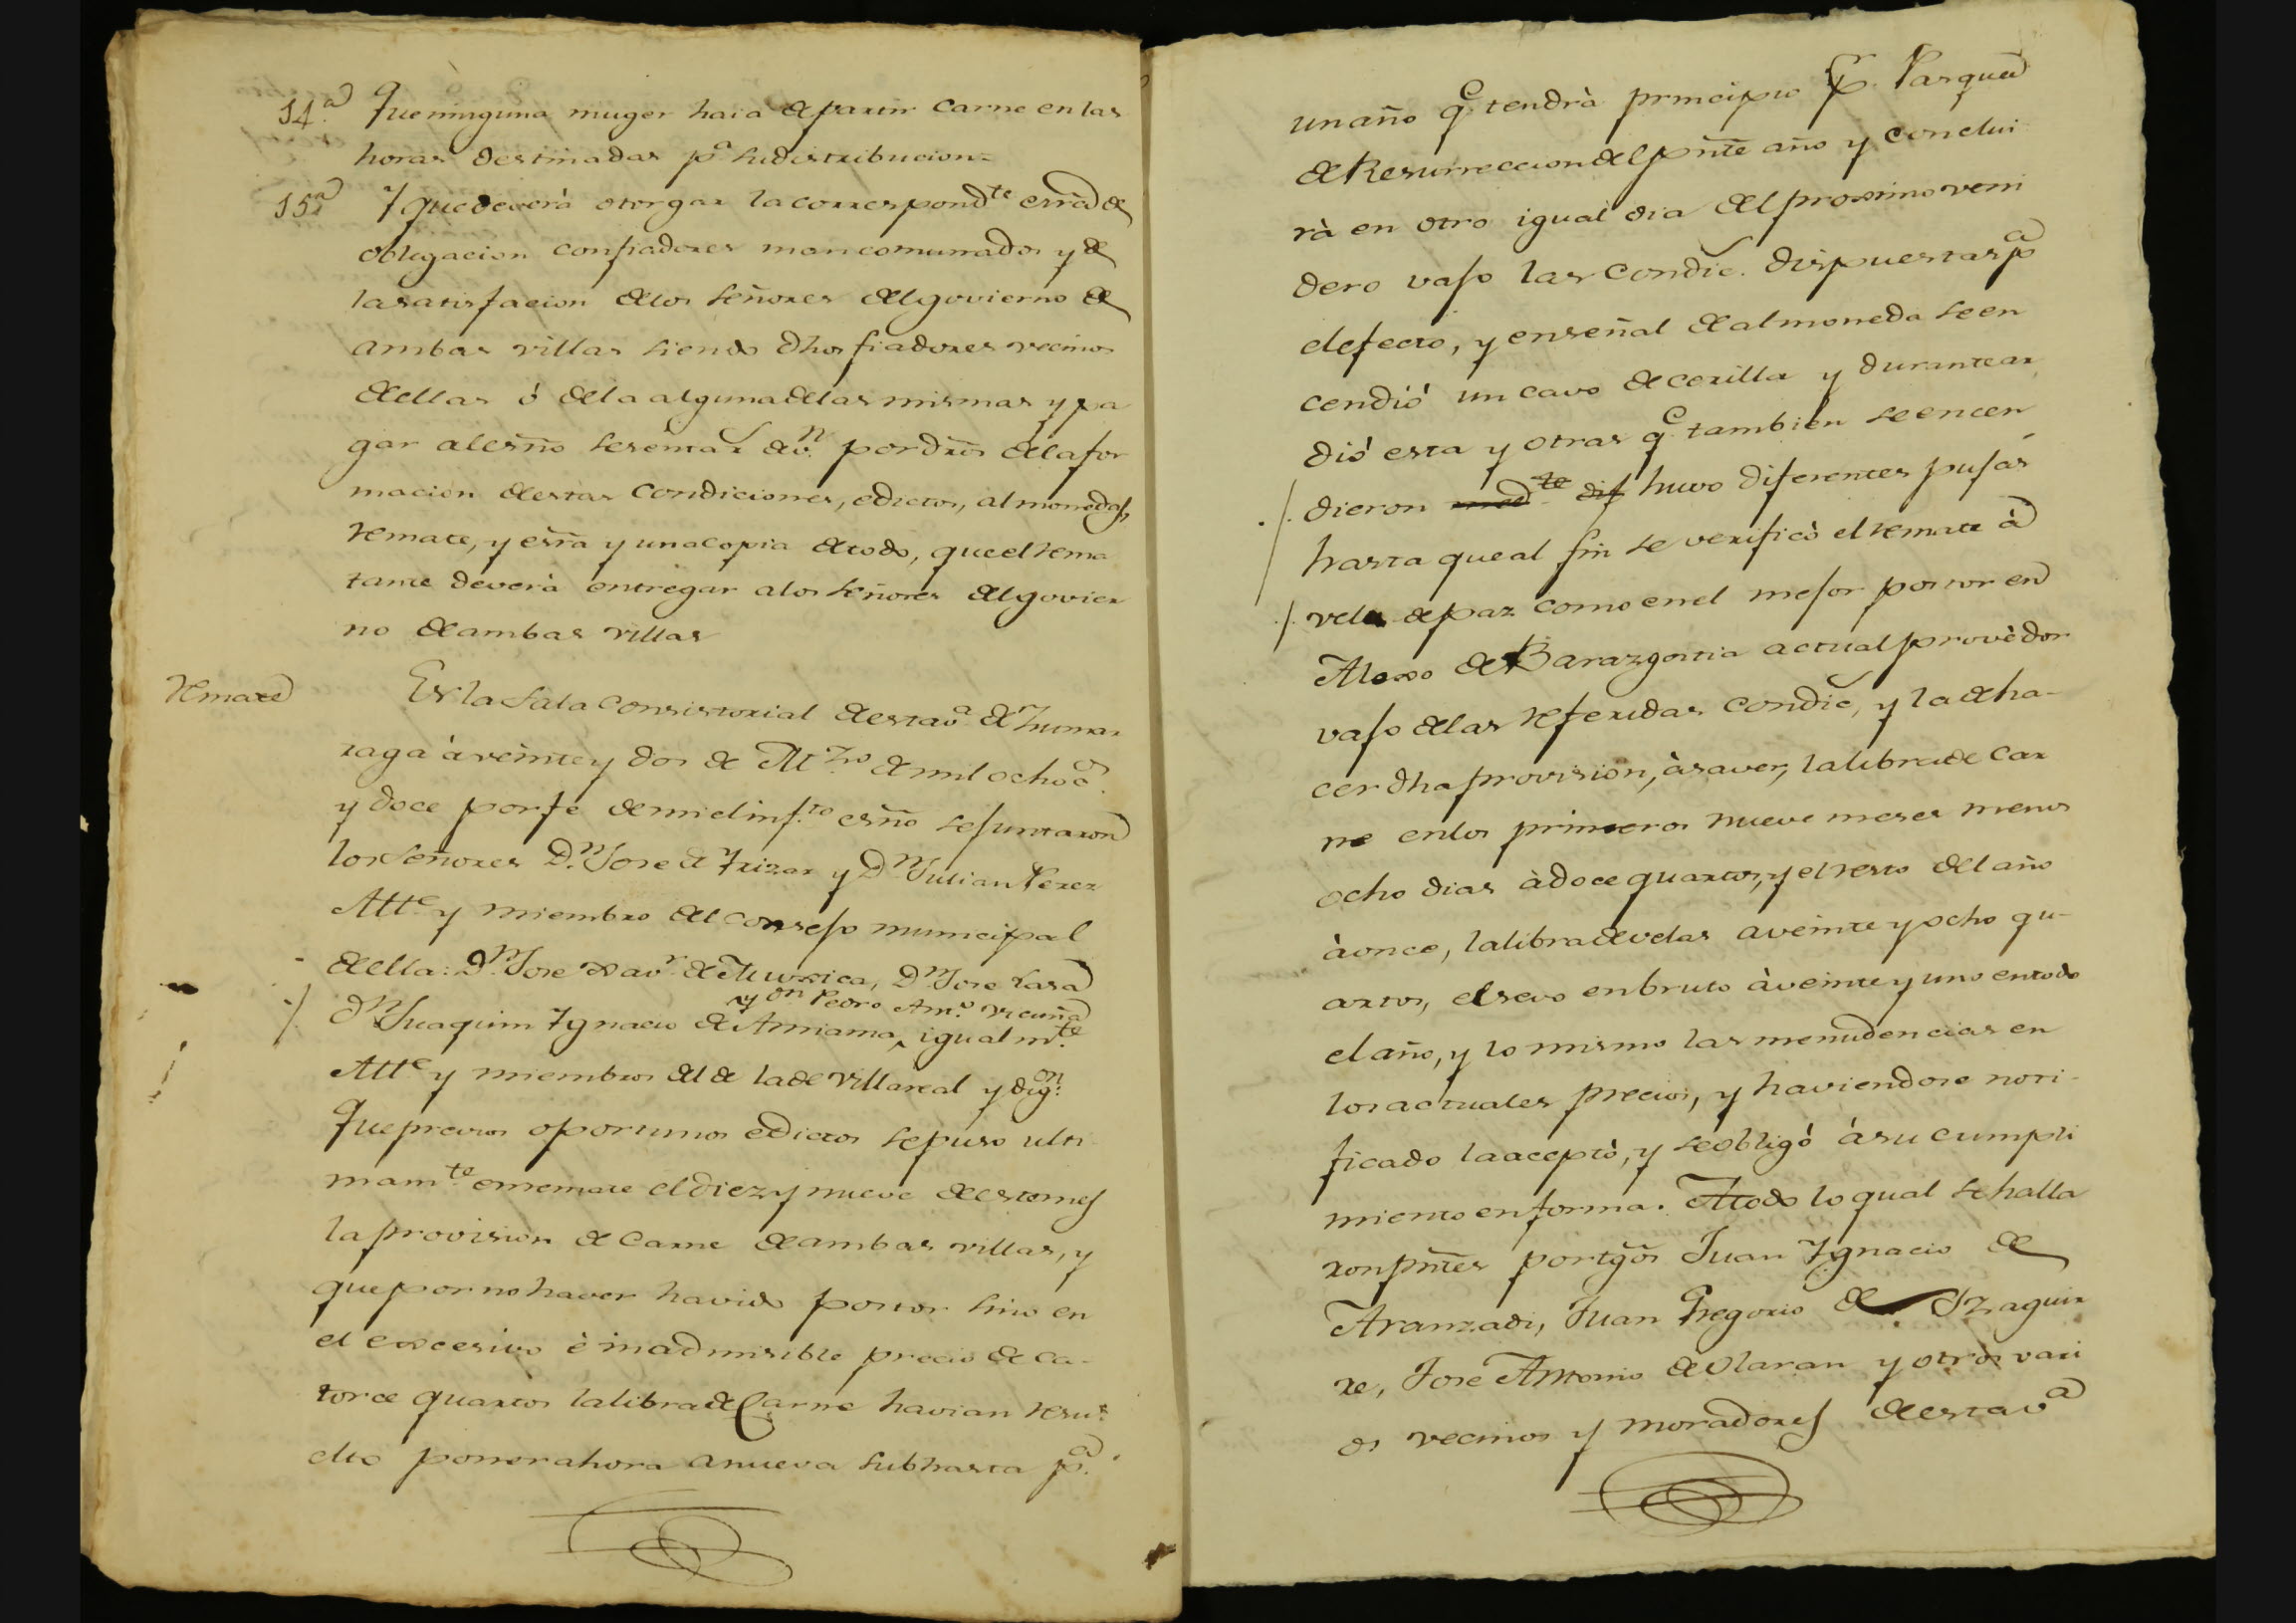 14.ª Que ninguna muger haia de partir carne en las
horas destinadas p.ª su distribucion=
15.ª Y que deverà otorgar la correspond.te esrâ de
obligacion con fiadores mancomunados y de
la satisfacion de los señores del govierno de
ambas villas siendo dhos fiadores vecinos
de ellas ó de la alguna de las mismas y pa
gar al esño sesenta r de v.n por drôs de la for
macion de estas condiciones, edictos, almonedas,
remate, y esrã y una copia de todo, que el rema
tante deverà entregar a los señores del govier
no de ambas villas
Remate En la Sala Consistorial de esta v.ª de Zumar
raga à veinte y dos de M.zo de mil ochoc.s
y doce por fe de mi el inf.to esño se juntaron
los señores D.n Jose de Yrizar y D.n Julian Perez
Att.e y miembro del consejo municipal
de ella: D.n Jose Xav.r de Mugica, D.n Jose Lasa
y on Pedro Ant.º Vicuña
D.n Juaquin Ygnacio de Arriama, igualm.te
Att.e y miembros del de la de Villareal y dig.on
Que previos oportunos edictos se puso ulti
mam.te en remate el diez y nueve de este mes
la provision de carne de ambas villas, y
que por no haver havido postor sino en
el excesivo è inadmisible precio de ca-
torce quartos la libra de Carne havian resu-
elto poner ahora a nueva subhasta p.ª
un año q.e tendrà principio p.r Pasqua
de Resurreccion del pñte año y conclui
rà en otro igual dia del proximo veni
dero vajo las condic. dispuestas p.ª
el efecto, y en señal de almoneda se en
cendió un cavo de cerilla y durante ar
dió esta y otras q.e tambien se encen
dieron huvo diferentes pujas
hasta que al fin se verificò el remate à
vela de paz como en el mejor postor en
Alexo de Barazgoitia actual proveedor
vajo de las referidas condic, y la de ha-
cer dha provision, à saver, la libra de car
ne en los primeros nueve meses menos
ocho dias à doce quartos, y el resto del año
à once, la libra de velas a veinte y ocho qu-
artos, el sevo en bruto à veinte y uno en todo
el año, y lo mismo las menudencias en
los actuales precios, y haviendose noti-
ficado la aceptò, y se obligò à su cumpli
miento en forma. A todo lo qual se halla
ron pñtes por tgõs Juan Ygnacio de
Aranzadi, Juan Gregorio de Yzaguir
re, Jose Antonio de Olaran y otros vari
os vecinos y moradores de esta v.ª